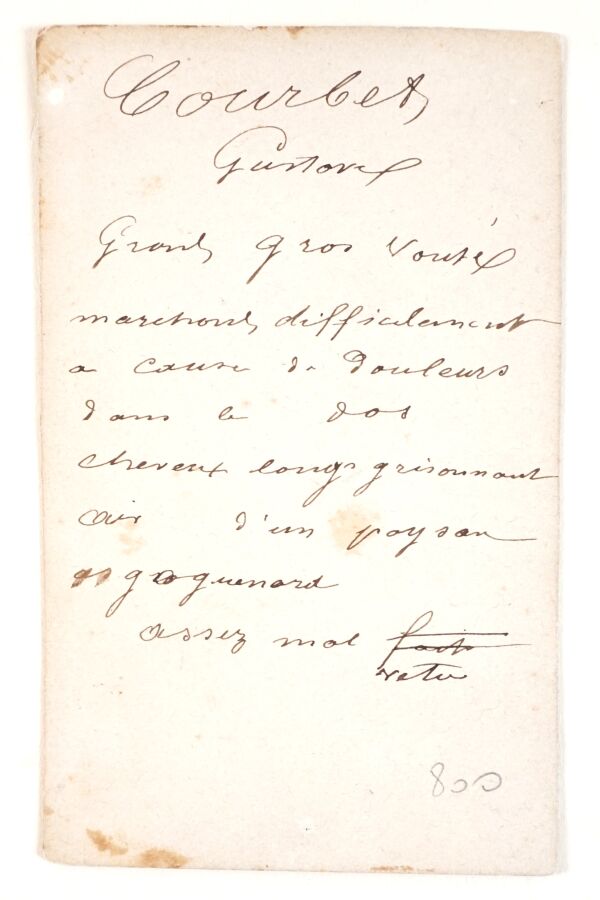 Courbet
Gustave
Grand gros vouté
marchant difficilement
a cause de douleurs
dans le dos
cheveux longs grisonnant
air d'un paysan
goguenard
assez mal fait
vetu
800